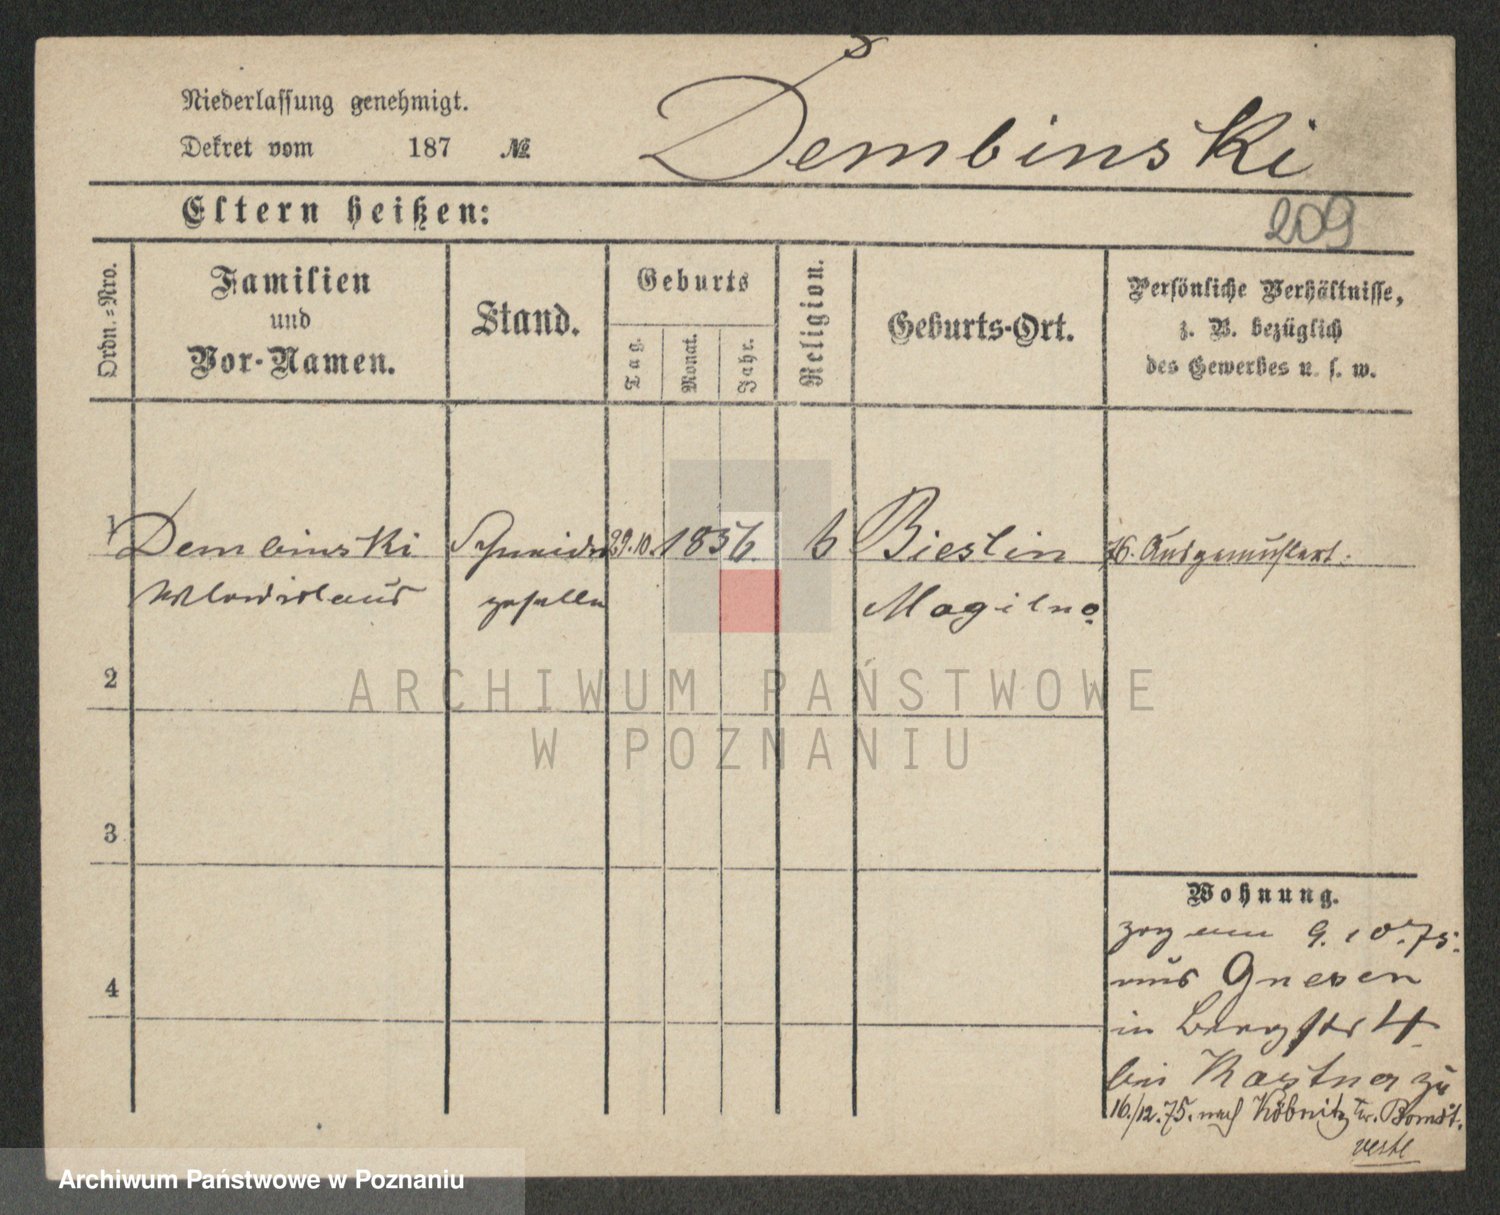 Niederlassung genehmigt.
Dekret vom 187 №
Dembinski
Eltern heißen:
209
Ordn.-Nro.
Familien
und
Vor-Namen.
Stand.
Geburts
Tag.
Monat.
Jahr.
Religion.
Geburts-Ort.
Persönliche Verhältnisse,
z. B. bezüglich
des Gewerbes u. s. w.
1 Dembinski Schneider 29. 10. 1856. Bieslin 76. Ausgemustert.
Wladislaus geselle Mogilno
2
3
4
Wohnung.
zog am 9. 10. 75.
aus Gnesen
in Bergstr 4
bei Kastner zu
16./12. 75. nach Köbnitz Kr. Bomst.
ARCHIWUM PAŃSTWOWE
W POZNANIU
Archiwum Państwowe w Poznaniu